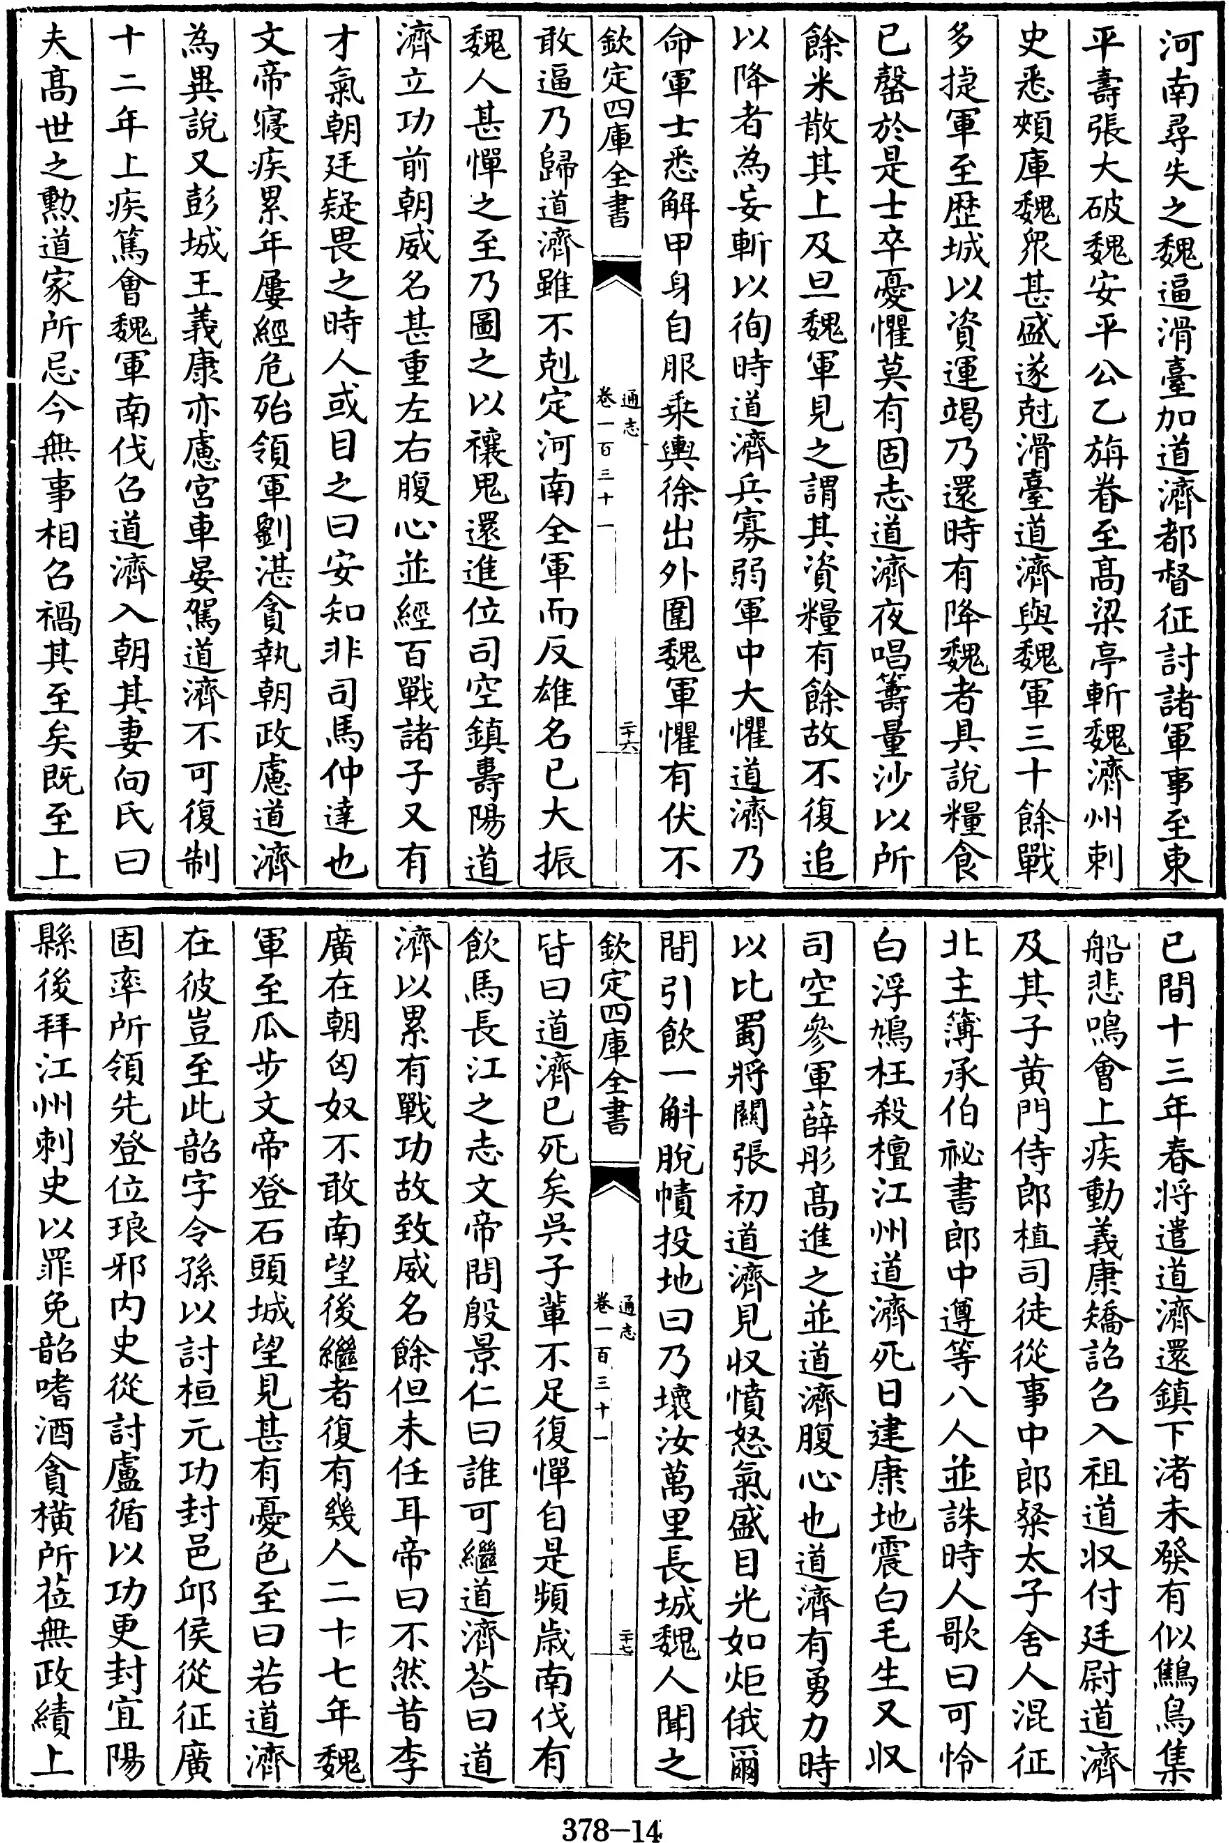 河南尋失之魏逼滑臺加道濟都督征討諸軍事至東
平壽張大破魏安平公乙旃眷至髙梁亭斬魏濟州刺
史悉頰庫魏衆甚盛遂尅滑臺道濟與魏軍三十餘戰
多捷軍至歴城以資運竭乃還時有降魏者具說糧食
已罄於是士卒憂懼莫有固志道濟夜唱籌量沙以所
餘米散其上及旦魏軍見之謂其資糧有餘故不復追
以降者為妄斬以徇時道濟兵寡弱軍中大懼道濟乃
命軍士悉解甲身自服乘輿徐出外圍魏軍懼有伏不
欽定四庫全書
通志
卷一百三十一
二十六
敢逼乃歸道濟雖不剋定河南全軍而反雄名已大振
魏人甚憚之至乃圖之以禳鬼還進位司空鎮壽陽道
濟立功前朝威名甚重左右腹心並經百戰諸子又有
才氣朝廷疑畏之時人或目之曰安知非司馬仲達也
文帝寢疾累年屢經危殆領軍劉湛貪執朝政慮道濟
為異說又彭城王義康亦慮宮車晏駕道濟不可復制
十二年上疾篤會魏軍南伐召道濟入朝其妻向氏曰
夫髙世之勲道家所忌今無事相召禍其至矣既至上
已間十三年春將遣道濟還鎮下渚未發有似鷦鳥集
船悲鳴會上疾動義康矯詔召入祖道收付廷尉道濟
及其子黄門侍郎植司徒從事中郎粲太子舍人混征
北主簿承伯祕書郎中遵等八人並誅時人歌曰可怜
白浮鳩枉殺檀江州道濟死日建康地震白毛生又收
司空參軍薛彤髙進之並道濟腹心也道濟有勇力時
以比蜀將關張初道濟見收憤怒氣盛目光如炬俄爾
間引飲一斛脫幘投地曰乃壞汝萬里長城魏人聞之
欽定四庫全書
通志
卷一百三十一
二十七
皆曰道濟已死矣吳子輩不足復憚自是頻歲南伐有
飲馬長江之志文帝問殷景仁曰誰可繼道濟荅曰道
濟以累有戰功故致威名餘但未任耳帝曰不然昔李
廣在朝匈奴不敢南望後繼者復有幾人二十七年魏
軍至瓜步文帝登石頭城望見甚有憂色至曰若道濟
在彼豈至此韶字令孫以討桓元功封邑邱侯從征廣
固率所領先登位琅邪内史從討盧循以功更封宜陽
縣後拜江州刺史以罪免韶嗜酒貪横所莅無政績上
378-14